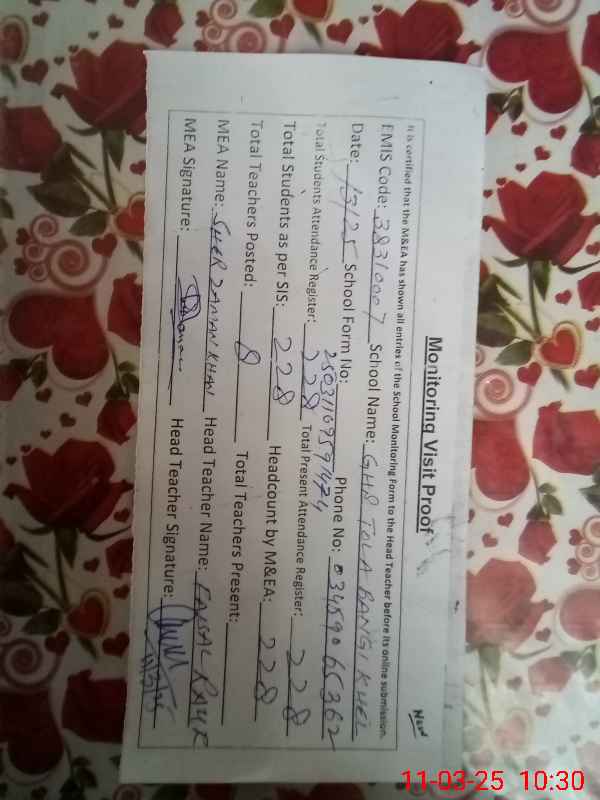 New
Monitoring Visit Proof
It is certified that the M&EA has shown all entries of the School Monitoring Form to the Head Teacher before its online submission.
EMIS Code: 38310007 School Name: GHS TOLA BANGI KHEL
Date: School Form No: 25031169591424 Phone No: 03459065362
Total Students Attendance Register: 228 Total Present Attendance Register: 228
Total Students as per SIS: 228 Headcount by M&EA: 228
Total Teachers Posted: 8 Total Teachers Present:
MEA Name: SHER ZAMAN KHAN Head Teacher Name: FAISAL
MEA Signature: Head Teacher Signature:
11-03-25 10:30